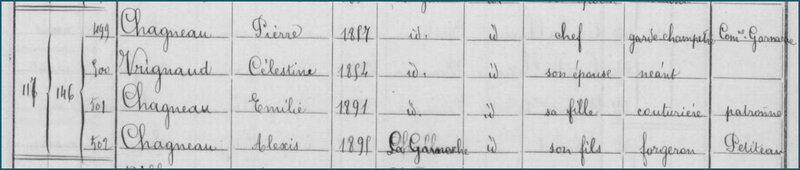 499 Chagneau Pierre 1857 id. id chef garde-champêtre Com.ne Garnache
500 Vrignaud Célestine 1854 id. id son épouse néant
117 146 501 Chagneau Emilie 1891 id. id sa fille couturière patronne
502 Chagneau Alexis 1895 La Garnache id son fils forgeron Petiteau